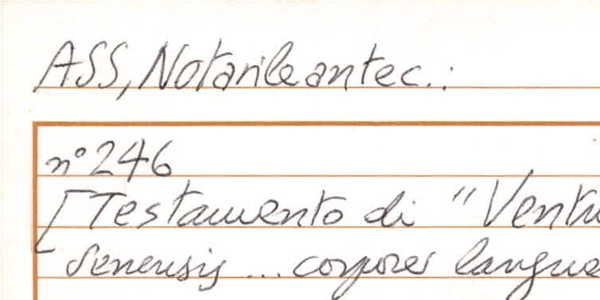 ASS, Notarile antec.:
n° 246
[Testamento di "Ventu
senensis ... corpore langue